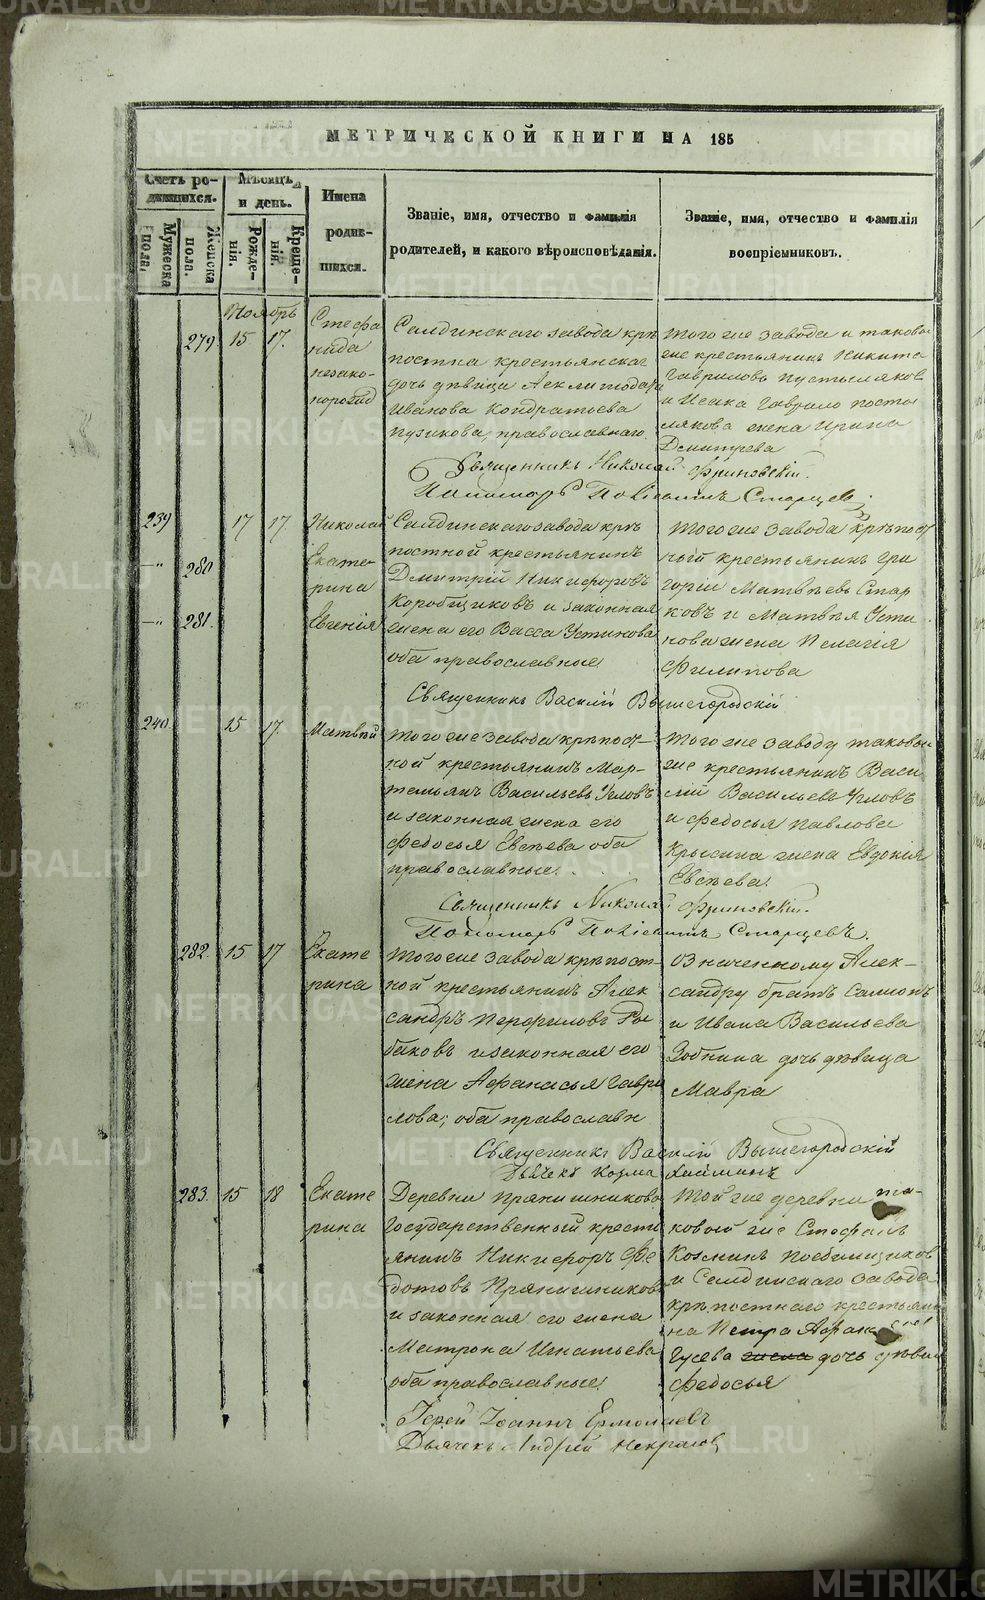 МЕТРИЧЕСКОЙ КНИГИ НА 185
Счетъ ро-
дившихся.
Мѣсяцъ
и день.
Имена
родив-
шихся.
Званіе, имя, отчество и фамилія
родителей, и какого вѣроисповѣданія.
Званіе, имя, отчество и фамилія
воспріемниковъ.
Мужеска
пола.
Женска
пола.
Рожде-
нія.
Креще-
нія.
Ноябрь
279 15 17.
Стефа
нида
незако-
норожд
Салдинскаго завода крѣ
постна крестьянская
дочь дѣвица
Иванова Кондратьева
Пузикова, православнаго.
того же завода и таково
же крестьянинъ Никита
Гавриловъ Пустыляковъ
и Исака Гаврило
лякова жена Ирина
Дмитрева
Священникъ Николай Фриновскій.
Пономарь Старцевъ
239 17 17. Николай
—"— 280 Екате-
рина
—"— 281. Евгенія
Салдинскаго завода крѣ
постной крестьянинъ
Дмитрій Никифоровъ
Коробщиковъ и законная
жена его Васса Устинова
оба православные
Того же завода крѣпост
ный крестьянинъ Гри
горій Матвѣевъ Стар
ковъ и Матвѣя Усти
нова жена Пелагія
Филипова
Священникъ Василій Вышегородскій
240. 15 17. Матвѣй
того же завода крѣпост-
ной крестьянинъ Мар-
темьянъ Васильевъ Угловъ
и законная жена его
Федосья Евсѣева оба
православные.
того же заводу таковои
же крестьянинъ Васи
лій Васильевъ Угловъ
и Федосья Павлова
Крысина жена Евдокія
Евсѣева.
Священникъ Николай Фриновскій.
Пономарь Старцевъ.
282. 15 17 Екате
рина
того же завода крѣпост-
ной крестьянинъ Алек
сандръ Перфиловъ Ры
баковъ и законная его
жена Афанасья Гаври
лова; оба православн
означенному Алек-
сандру братъ Самсонъ
и Ивана Васильева
Зобнина дочь дѣвица
Мавра
Священникъ Василій Вышегородскій
Дьячекъ Козма Хаймин
283. 15 18 Екате
рина
Деревни Прянишниково
Государственный крестья
янинъ Никифоръ Фе
дотовъ Прянишниковъ
и законная его жена
Матрона Игнатьева
оба православные.
Той же деревни та-
ковой же Стефанъ
Козминъ
и Салдинскаго завода
крѣпостнаго крестьяни
на Петра Афанасьева
Гусева жена дочь дѣвица
Федосья
Іерей Іоаннъ Ермолаевъ
Дьячекъ Андрей Некрасовъ
METRIKI.GASO-URAL.RU